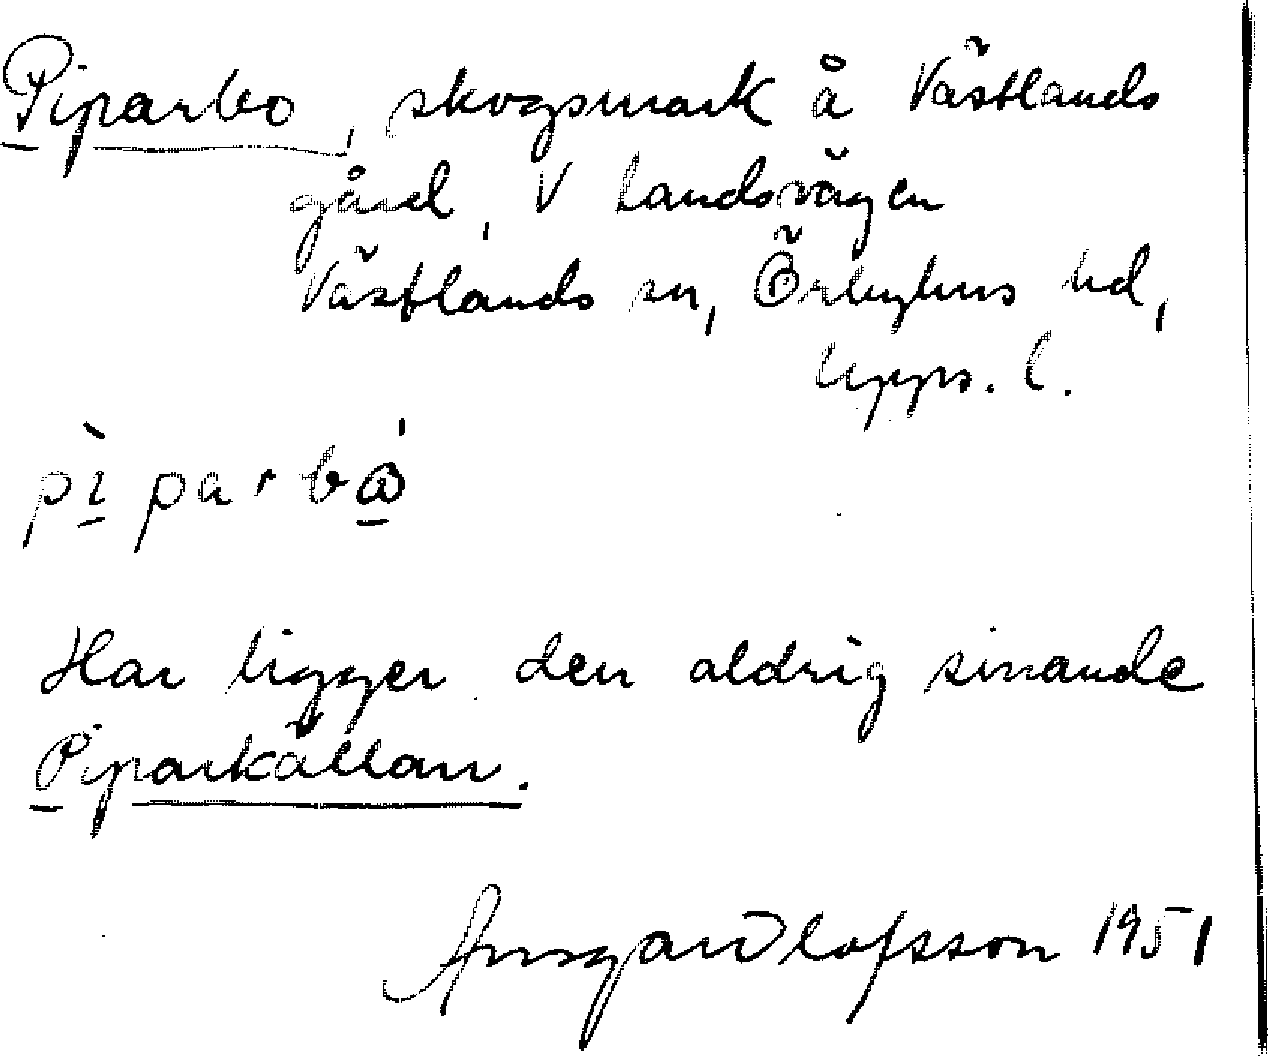 Piparbo, skogsmark å Västlands
gård, V landsvägen
Västlands sn, Örbyhus hd,
Upps. l.
pì parbó
Här ligger den aldrig sinande
Piparkällan.
Ansgar Olofsson 1951